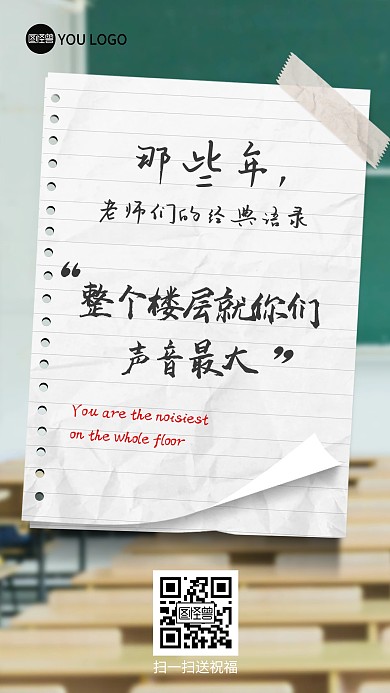 图怪兽 YOU LOGO
那些年，
老师们的经典语录
“整个楼层就你们
声音最大”
You are the noisiest
on the whole floor
图怪兽
扫一扫送祝福